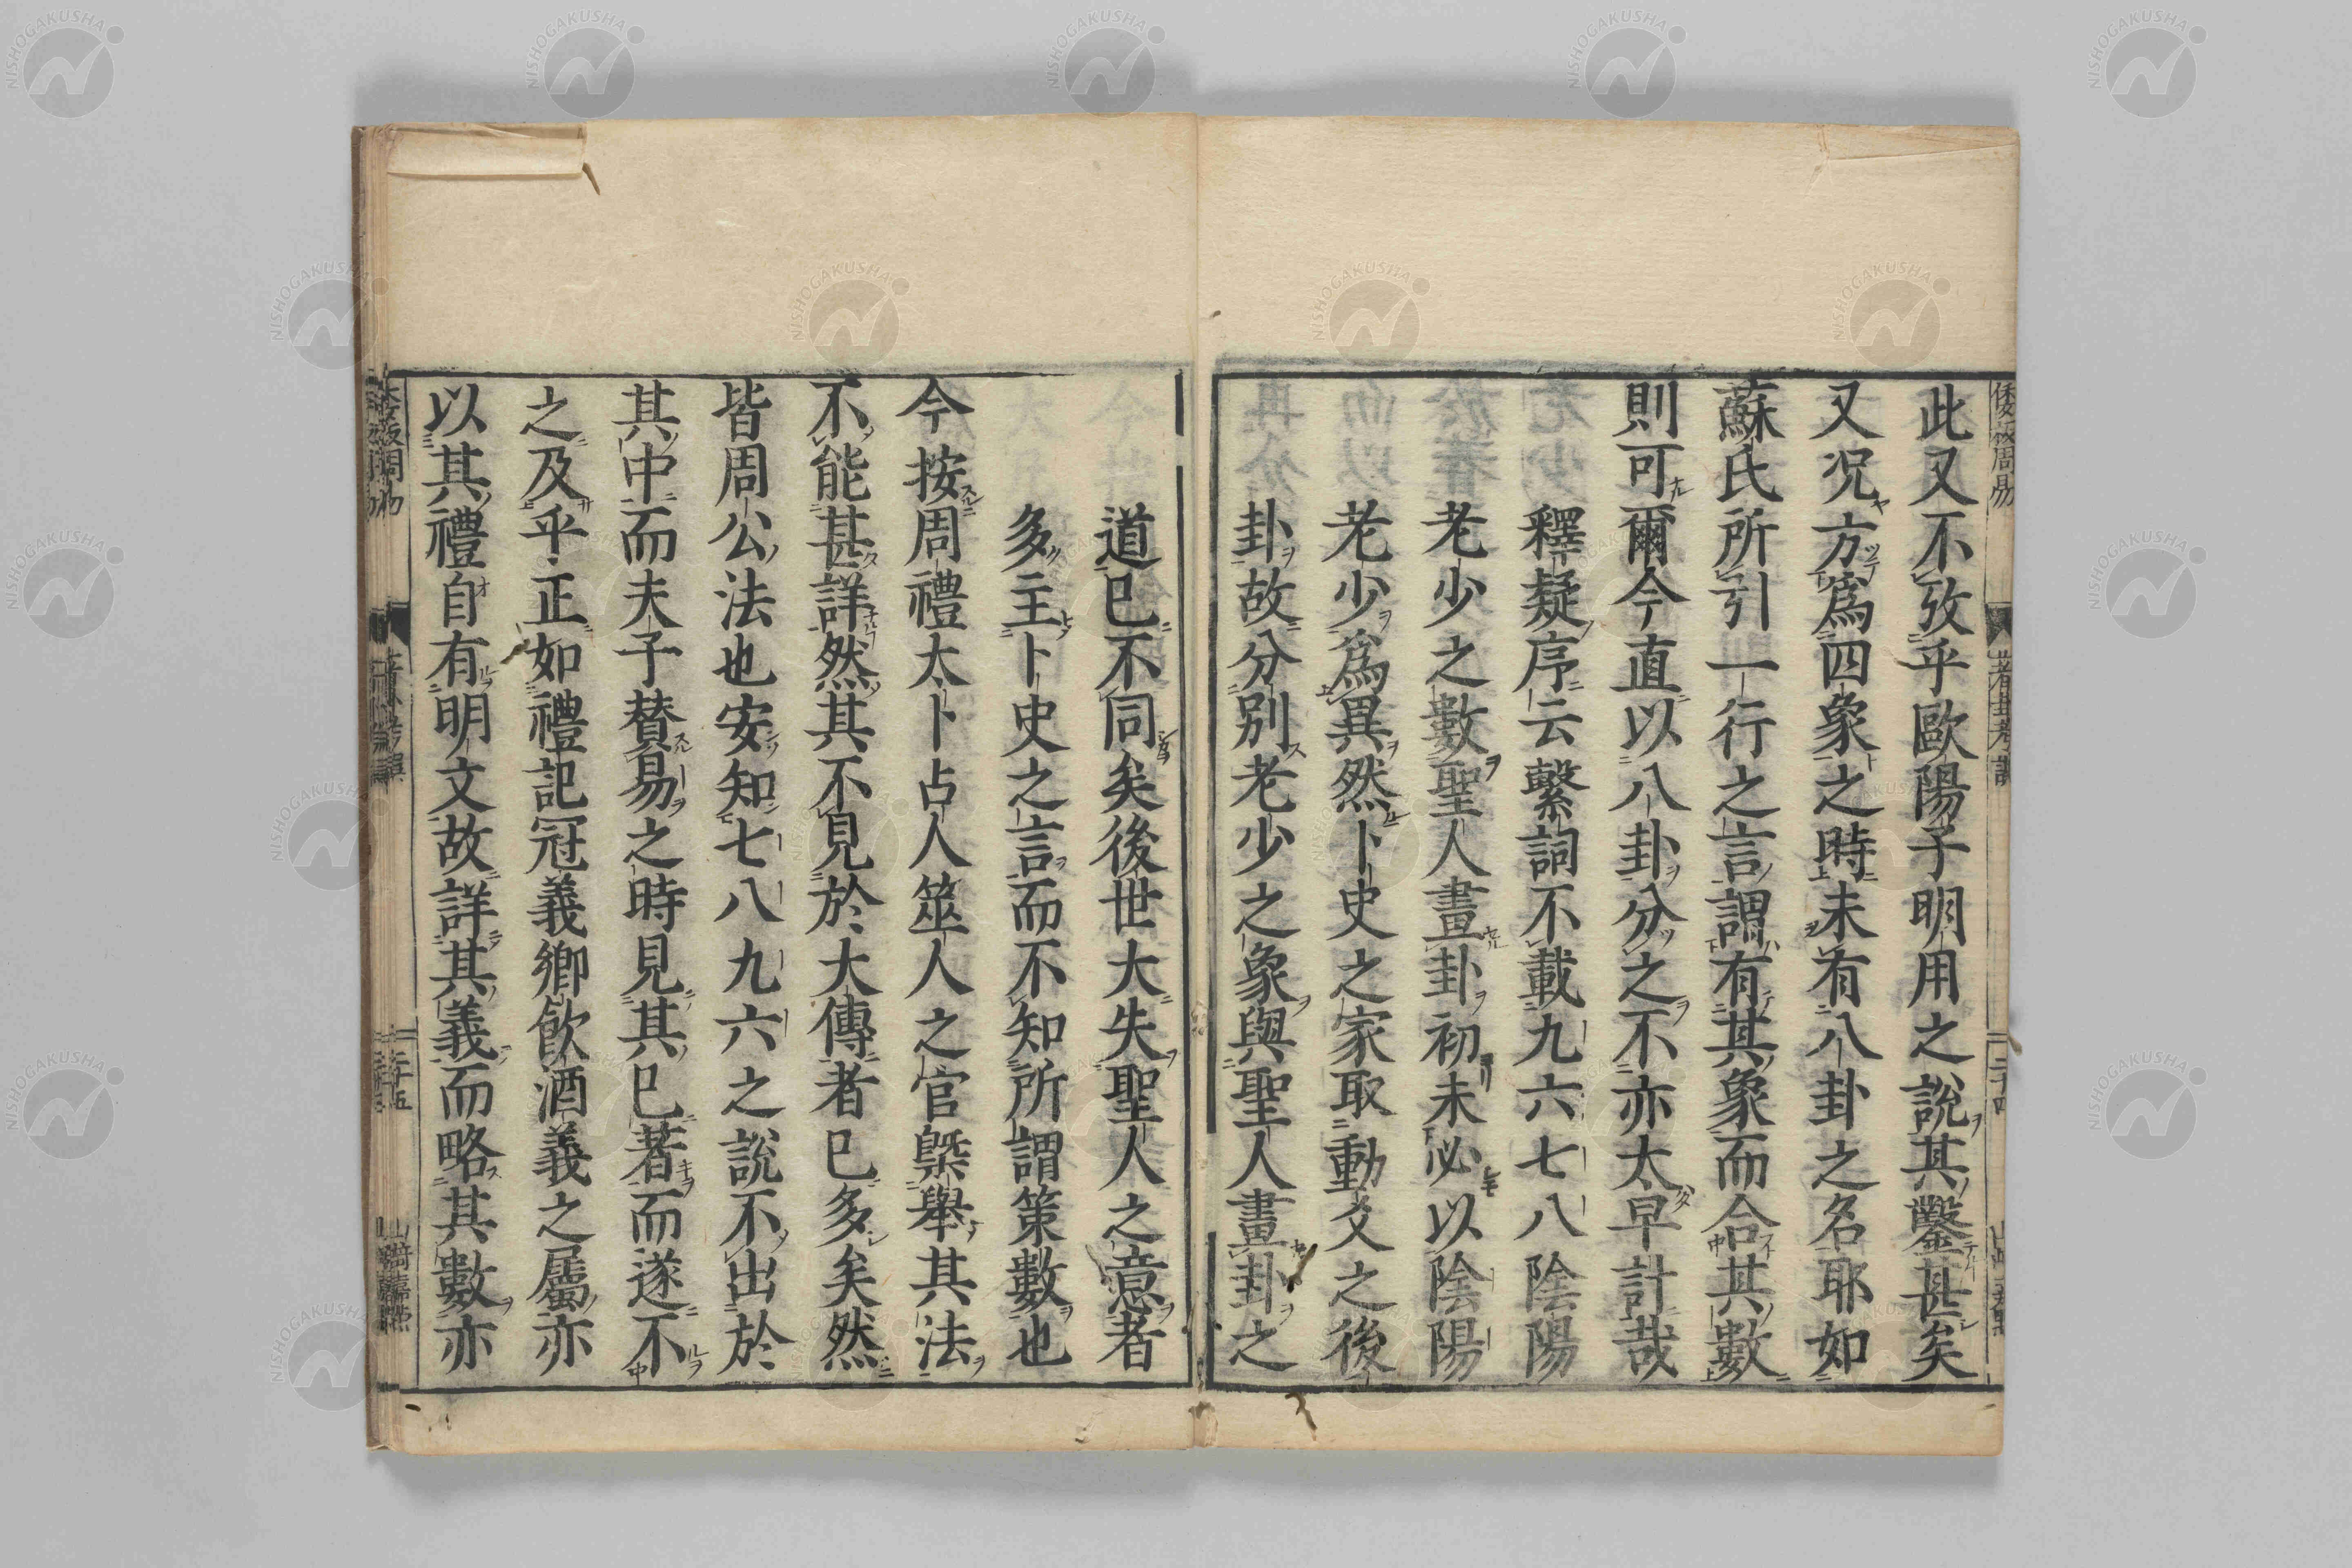 此又不攷乎歐陽子明用之說其鑿甚矣
又況方爲四象之時未有八卦之名耶如
蘇氏所引一行之言謂有其象而合其數
則可爾今直以八卦分之不亦太早計哉
釋疑序云繫詞不載九六七八陰陽
老少之數聖人畫卦初未必以陰陽
老少爲異然卜史之家取動爻之後
卦故分别老少之象與聖人畫卦之
道已不同矣後世大失聖人之意者
多主卜史之言而不知所謂策數也
今按周禮太卜占人筮人之官槩舉其法
不能甚詳然其不見於大傳者已多矣然
皆周公法也安知七八九六之說不出於
其中而夫子賛易之時見其已著而遂不
之及乎正如禮記冠義鄉飲酒義之屬亦
以其禮自有明文故詳其義而略其數亦
倭板周易
蓍卦考誤
二十四
二十五
山﨑嘉點
NISHOGAKUSHA